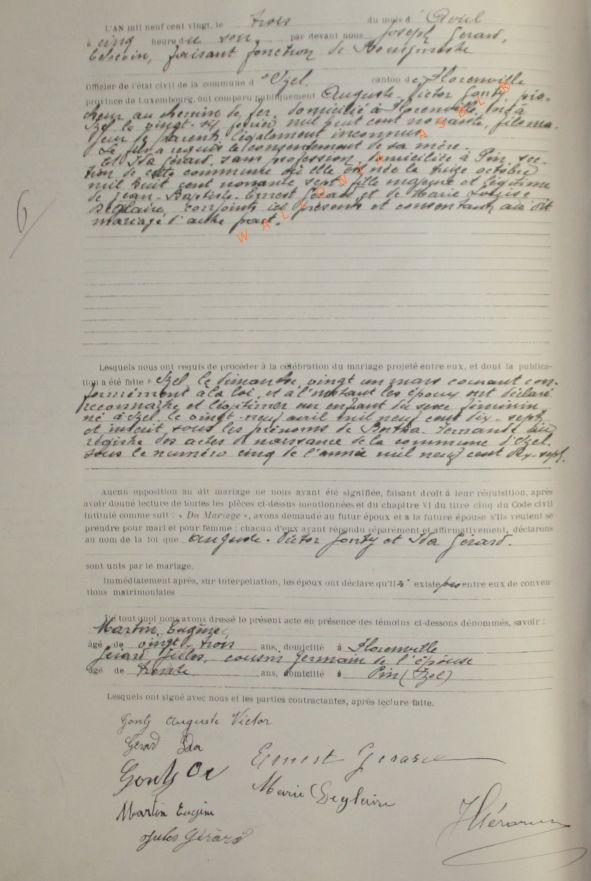 6
L'AN mil neuf cent vingt, le trois du mois d'Avril
à cinq heures du soir, par devant nous Joseph Gérard,
Echevin, faisant fonction de Bourgmestre
Officier de l'état civil de la commune d'Izel, canton de Florenville
province de Luxembourg, ont comparu publiquement Auguste-Victor Gonty, pio-
cheur au chemin de fer, domicilié à Florenville, né à
Izel le vingt-six juin mil huit cent nonante, fils ma-
jeur de parents légalement inconnus
Le futur a requis le consentement de sa mère.
et Ida Gérard, sans profession, domiciliée à Pin, sec-
tion de cette commune où elle est née le treize octobre
mil huit cent nonante sept, fille majeure et légitime
de Jean-Baptiste-Ernest Gérard et de Marie-Louise
Deglaire, conjoints ici présents et consentant au dit
mariage d'autre part.
WALLONIA ASBL
Lesquels nous ont requis de procéder à la célébration du mariage projeté entre eux, et dont la publica-
tion a été faite à Izel, le dimanche vingt un mars courant con-
formément à la loi, et à l'instant les époux ont déclaré
reconnaître et légitimer un enfant du sexe féminin
né à Izel, le vingt-neuf avril mil neuf cent dix-sept,
et inscrit sous les prénoms de Bertha-Fernande au
registre des actes de naissance de la commune d'Izel
sous le numéro cinq de l'année mil neuf cent dix-sept.
Aucun opposition au dit mariage ne nous ayant été signifiée, faisant droit à leur réquisition, après
avoir donné lecture de toutes les pièces ci-dessus mentionnées et du chapitre VI du titre cinq du Code civil
intitulé comme suit : « Du Mariage », avons demandé au futur époux et à la future épouse s'ils veulent se
prendre pour mari et pour femme : chacun d'eux ayant répondu séparément et affirmativement, déclarons
au nom de la loi que Auguste-Victor Gonty et Ida Gérard.
sont unis par le mariage.
Immédiatement après, sur interpellation, les époux ont déclaré qu'il n'existe pas entre eux de conven-
tions matrimoniales
De tout quoi nous avons dressé le présent acte en présence des témoins ci-dessous dénommés, savoir :
Martin, Eugène,
âgé de vingt-trois ans, domicilié à Florenville
Gérard Jules, cousin germain de l'épouse
âgé de trente ans, domicilié à Pin (Izel)
Lesquels ont signé avec nous et les parties contractantes, après lecture faite.
Gonty Auguste Victor
Gérard Ida
Gonty
Ernest Gerard
Marie Deglaire
Martin Eugène
Jules Gérard
J Gérard